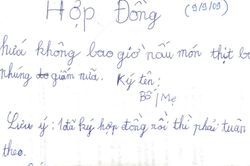 Hợp Đồng (9/9/09)
hứa không bao giờ nấu món thịt bò
nhúng giấm nữa. Ký tên:
Bố | Mẹ
Lưu ý: đã ký hợp đồng rồi thì phải tuân
theo.